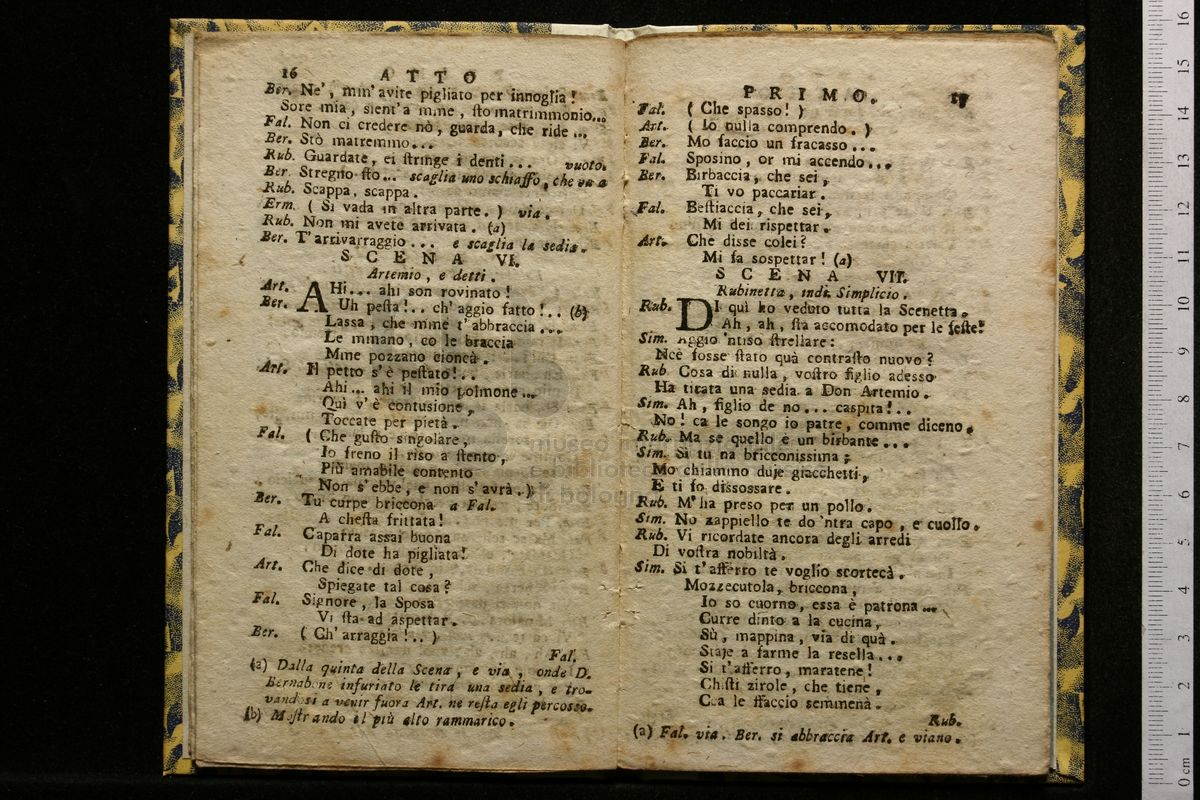 16 ATTO
Ber. Ne', mm'avite pigliato per innoglia!
Sore mia, sient'a mme, sto matrimmonio...
Fal. Non ci credere nò, guarda, che ride...
Ber. Stò matremmo...
Rub. Guardate, ei stringe i denti... vuoto.
Ber. Stregno sto... scaglia uno schiaffo, che va a
Rub. Scappa, scappa.
Erm. (Si vada in altra parte.) via.
Rub. Non mi avete arrivata. (a)
Ber. T'arrivarraggio... e scaglia la sedia.
SCENA VI.
Artemio, e detti.
Art. AHi... ahi son rovinato!
Ber. Uh pesta!.. ch'aggio fatto!.. (b)
Lassa, che mme t'abbraccia...
Le mmano, co le braccia
Mme pozzano cioncà.
Art. Il petto s'è pestato!..
Ahi... ahi il mio polmone...
Quì v'è contusione,
Toccate per pietà.
Fal. (Che gusto singolare,
Io freno il riso a stento,
Più amabile contento
Non s'ebbe, e non s'avrà.)
Ber. Tu curpe briccona a Fal.
A chesta frittata!
Fal. Caparra assai buona
Di dote ha pigliata!
Art. Che dice di dote,
Spiegate tal cosa?
Fal. Signore, la Sposa
Vi sta ad aspettar.
Ber. (Ch'arraggia!..)
Fal.
(a) Dalla quinta della Scena, e via, onde D.
Bernabone infuriato le tira una sedia, e tro-
vandosi a venir fuora Art. ne resta egli percosso.
(b) Mostrando il più alto rammarico.
PRIMO. 17
Fal. (Che spasso!)
Art. (Io nulla comprendo.)
Ber. Mo faccio un fracasso...
Fal. Sposino, or mi accendo...
Ber. Birbaccia, che sei,
Ti vo paccariar.
Fal. Bestiaccia, che sei,
Mi dei rispettar.
Art. Che disse colei?
Mi fa sospettar! (a)
SCENA VII.
Rubinetta, indi Simplicio.
Rub. DI quì ho veduto tutta la Scenetta.
Ah, ah, sta accomodato per le feste!
Sim. Aggio 'ntiso strellare:
Nce fosse stato quà contrasto nuovo?
Rub. Cosa di nulla, vostro figlio adesso
Ha tirata una sedia a Don Artemio.
Sim. Ah, figlio de no... caspita!..
No! ca le songo io patre, comme diceno.
Rub. Ma se quello è un birbante...
Sim. Si tu na bricconissima;
Mo chiammo duje giacchetti,
E ti fo dissossare.
Rub. M'ha preso per un pollo.
Sim. No zappiello te do 'ntra capo, e cuollo.
Rub. Vi ricordate ancora degli arredi
Di vostra nobiltà.
Sim. Si t'afferro te voglio scortecà.
Mozzecutola, briccona,
Io so cuorno, essa è patrona...
Curre dinto a la cucina,
Sù, mappina, via di quà.
Staje a farme la resella...
Si t'afferro, maratene!
Chisti zirole, che tiene,
Coa le sfaccio semmenà.
Rub.
(a) Fal. via. Ber. si abbraccia Art. e viano.